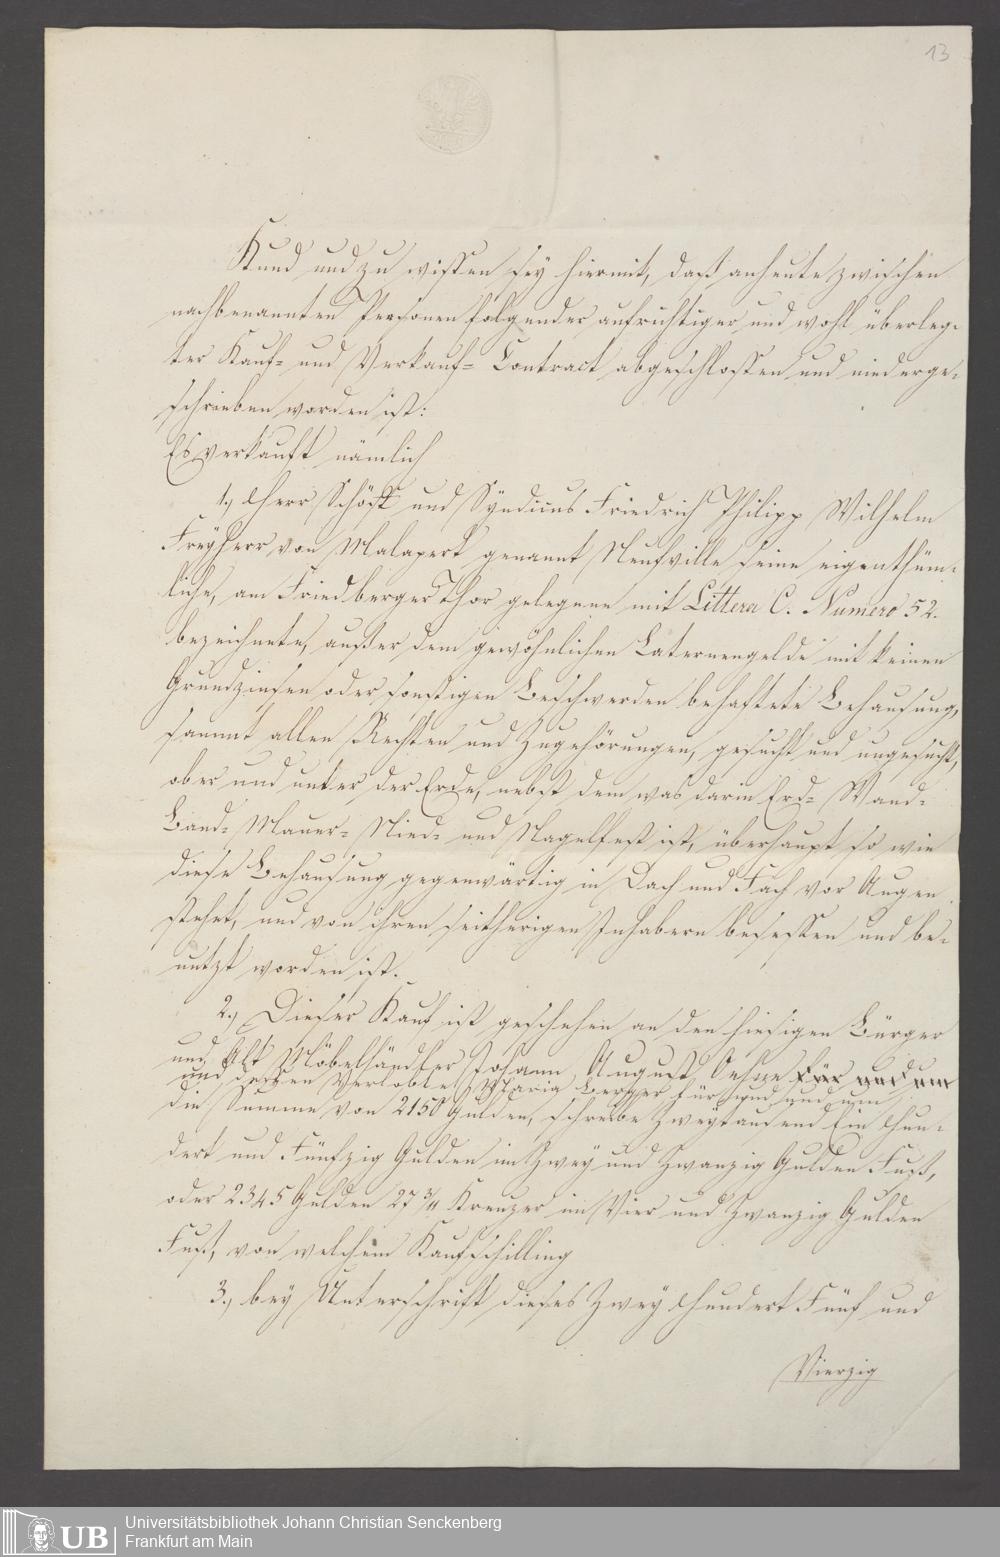 13
Kund und zu wissen sey hiermit, daß anheute zwischen
nachbenannten Personen folgender aufrichtiger und wohl überleg-
ter Kauf- und Verkauf- Contract abgeschlossen und niederge-
schrieben worden ist:
Es verkauft nämlich
1., Herr Schöff und Syndicus Friedrich Philipp Wilhelm
Freyherr von Malapert genannt Neufville seine eigenthüm-
liche, am Friedberger Thor gelegene mit Littera C. Numero 52.
bezeichnete, außer dem gewöhnlichen Laternengelde mit keinen
Grundzinsen oder sonstigen Beschwerden behaftete Behausung,
sammt allen Rechten und Zugehörungen, gesucht und ungesucht,
ober und unter der Erde, nebst dem was darin Erd- Wand-
Band- Mauer- Nied- und Nagelfest ist, überhaupt so wie
diese Behausung gegenwärtig in Dach und Fach vor Augen
stehet, und von ihren seitherigen Inhabern besessen und be-
nutzt worden ist.
2., Dieser Kauf ist geschehen an den hiesigen Bürger
und Alt Möbelhändler Johann August Oehne für und um
und dessen Verlobte Maria Berger für und und um
die Summe von 2150 Gulden, schreibe Zweytausend Ein Hun-
dert und Fünfzig Gulden im Zwey und Zwanzig Gulden Fuß,
oder 2345 Gulden 27 3/11 Kreuzer im Vier und Zwanzig Gulden
Fuß, von welchem Kaufschilling
3., bey Unterschrift dieses Zwey Hundert Fünf und
Vierzig
UB
Universitätsbibliothek Johann Christian Senckenberg
Frankfurt am Main